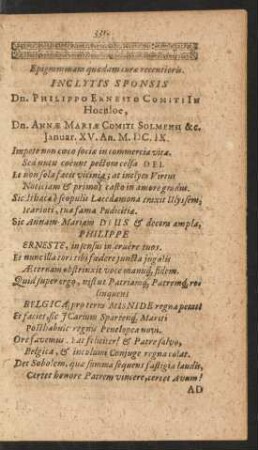 Epigrammata quædam curæ recentioris.
INCLYTIS SPONSIS
Dn. PHILIPPO ERNESTO COMITI IN
Hoenloe,
Dn. ANNÆ MARIÆ COMITI SOLMENSI &c.
Januar. XV. An. M. DC. IX.
Impete non cæco sociæ in commercia vitæ
Sed nutu coëunt pectora celsa DEI.
Te non sola facit vicinia; at inclyta Virtus
Notitiam & primos casto in amore gradus.
Sic Ithacæ è scopulis Lacedæmona traxit Ulyssem,
Icarioti, tua fama Pudicitia.
Sic Annam Mariam DIUS & decora ampla,
PHILIPPE
ERNESTE, in sensus in eruêre tuos.
Et nunc illa tori tibi fœdere juncta jugalis
Æternum obstrinxit voce manuq; fidem.
Quid super ergo, nisi ut Patriamq; Patremq; relinquens
BELGICA pro terris MINEIDE regna petat
Et faciet, sic JCarium Spartenq; Mariti
Posthabuit regnis Penelopea novis.
Ore favemus. Eat feliciter! & Patre salvo,
Belgica, & incolumi Conjuge regna colat.
Det Sobolem, quæ summa sequens fastigia laudis,
Certet honore Patrem vincere, certet Avum!
AD